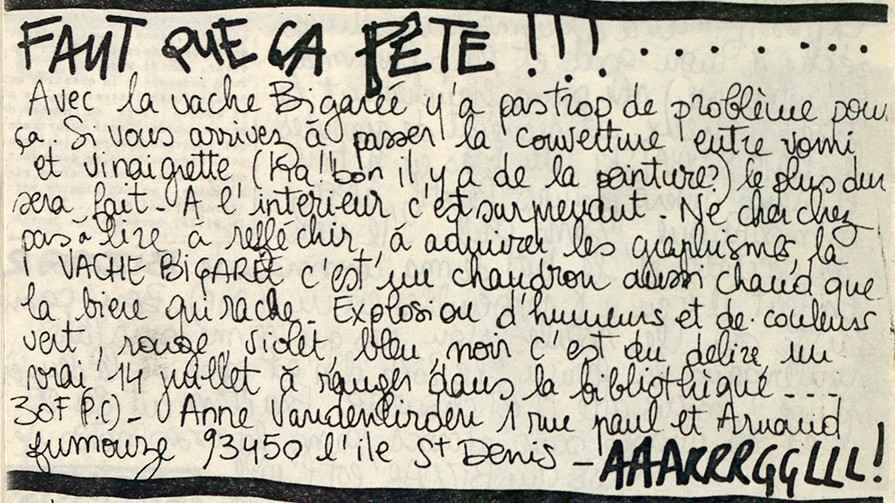 FAUT QUE ÇA PÈTE !!! . . . . . . . . .
Avec la vache Bigarée y'a pas trop de problème pour
ça. Si vous arrivez à passer la couverture entre vomi
et vinaigrette (Ka!! bon il y a de la peinture?) le plus dur
sera fait - A l'interieur c'est surprenant - Ne cherchez
pas à lire à refléchir, à admirer les graphismes, la
VACHE BIGARÉE c'est un chaudron aussi chaud que
la biere qui rache - Explosion d'humeurs et de couleurs
vert, rouge, violet, bleu, noir c'est du delire, un
vrai 14 juillet à ranger dans la bibliothèque ...
30F (P.C) - Anne Vandenlinden 1 rue paul et Arnaud
fumouze 93450 l'ile St Denis - AAARRRGGLLL!